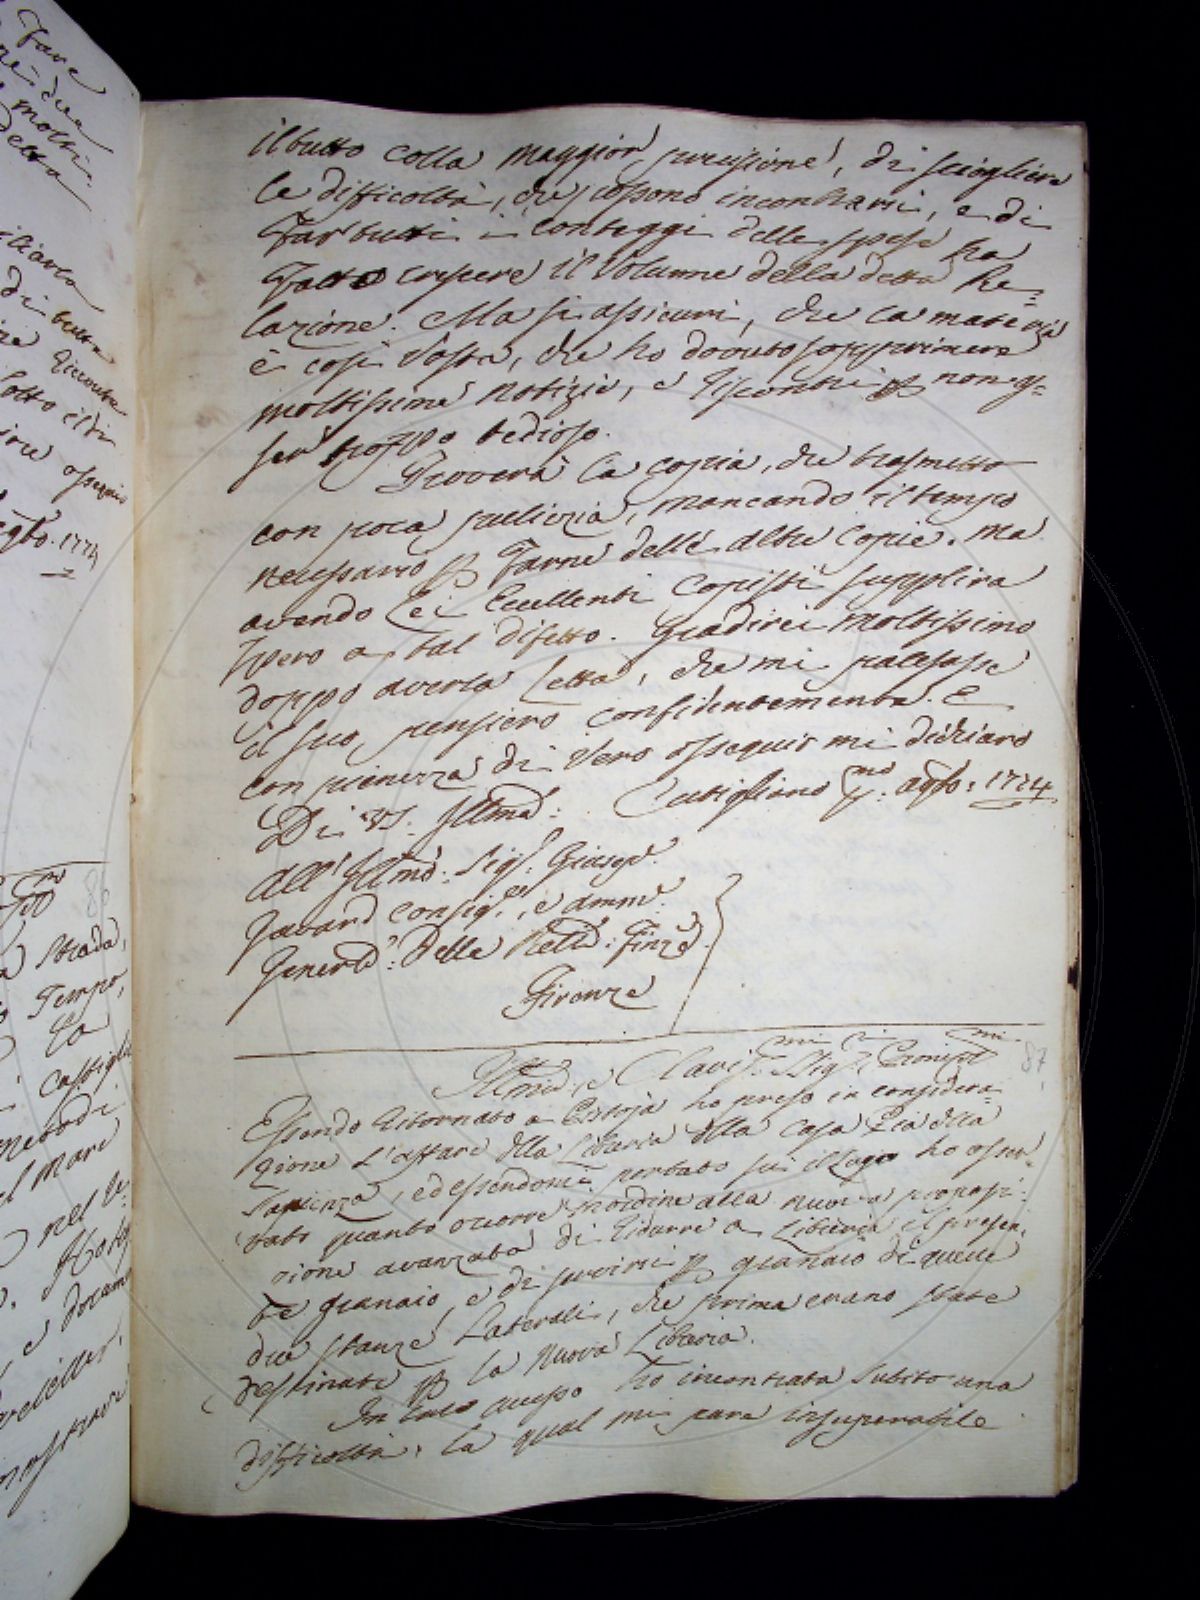 il tutto colla maggior precisione, di sciogliere
le difficoltà, che possono incontrarsi, e di
far tutti i conteggi delle spese ha
fatto crescere il Volume della detta Re=
lazione. Ma si assicuri, che la materia
è così Vasta, che ho dovuto sopprimere
moltissime Notizie, e riscontri p non es=
ser troppo tedioso.
Troverà la copia, che trasmetto
con poca pulizia, mancando il tempo
necessario p farne delle altre Copie. Ma
avendo Lei Eccellenti Copisti supplirà
spero a tal difetto. Gradirei moltissimo
doppo averla letta, che mi palesasse
il suo pensiero confidentemente. E
con pienezza di Vero ossequio mi dichiaro
Di VS. Illma: Cutigliano Pmo: agto: 1774
All' Illmo: Sigr: Giuseppe
Gavard Consigre, e amme
Generle: Delle Finze
Firenze
87
Illmi: e Clarismi Sigri
Essendo ritornato a Pistoja ho preso in considera=
zione l'affare della Libreria della Casa Pia della
Sapienza, ed essendomi portato sù il Luogo ho osser=
vato quanto occorre in ordine alla nuova proposi=
zione avanzata di ridurre a Libreria il presen=
te granaio, e di servirsi p granaio di quelle
due stanze Laterali, che prima erano state
destinate p la Nuova Libreria.
In Luogo ho incontrata Subito una
difficoltà, la qual mi pare insuperabile
86
Strada,
Tempo,
la
nel
1774